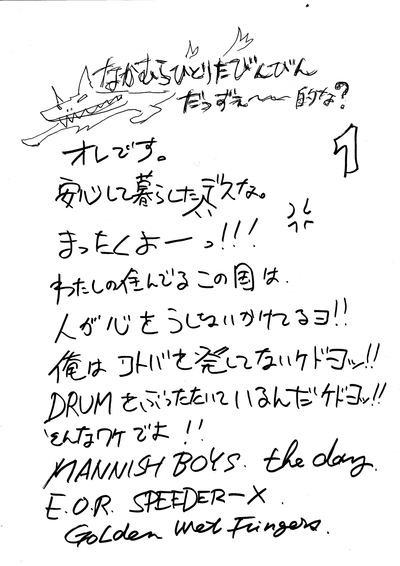 なかむらひとりたびんびん
だっずぇ〜〜 的な?
1
オレです。
安心して暮らしたいデスな。
まったくよーっ!!!
わたしの住んでるこの国は.
人が心をうしないかけてるヨ!!
俺はコトバを発してないケドヨッ!!
DRUMをぶったたいているんだケドヨッ!!
そんなワケでよ!!
MANNISH BOYS. the day.
E.O.R. SPEEDER-X.
Golden Wet Fingers.